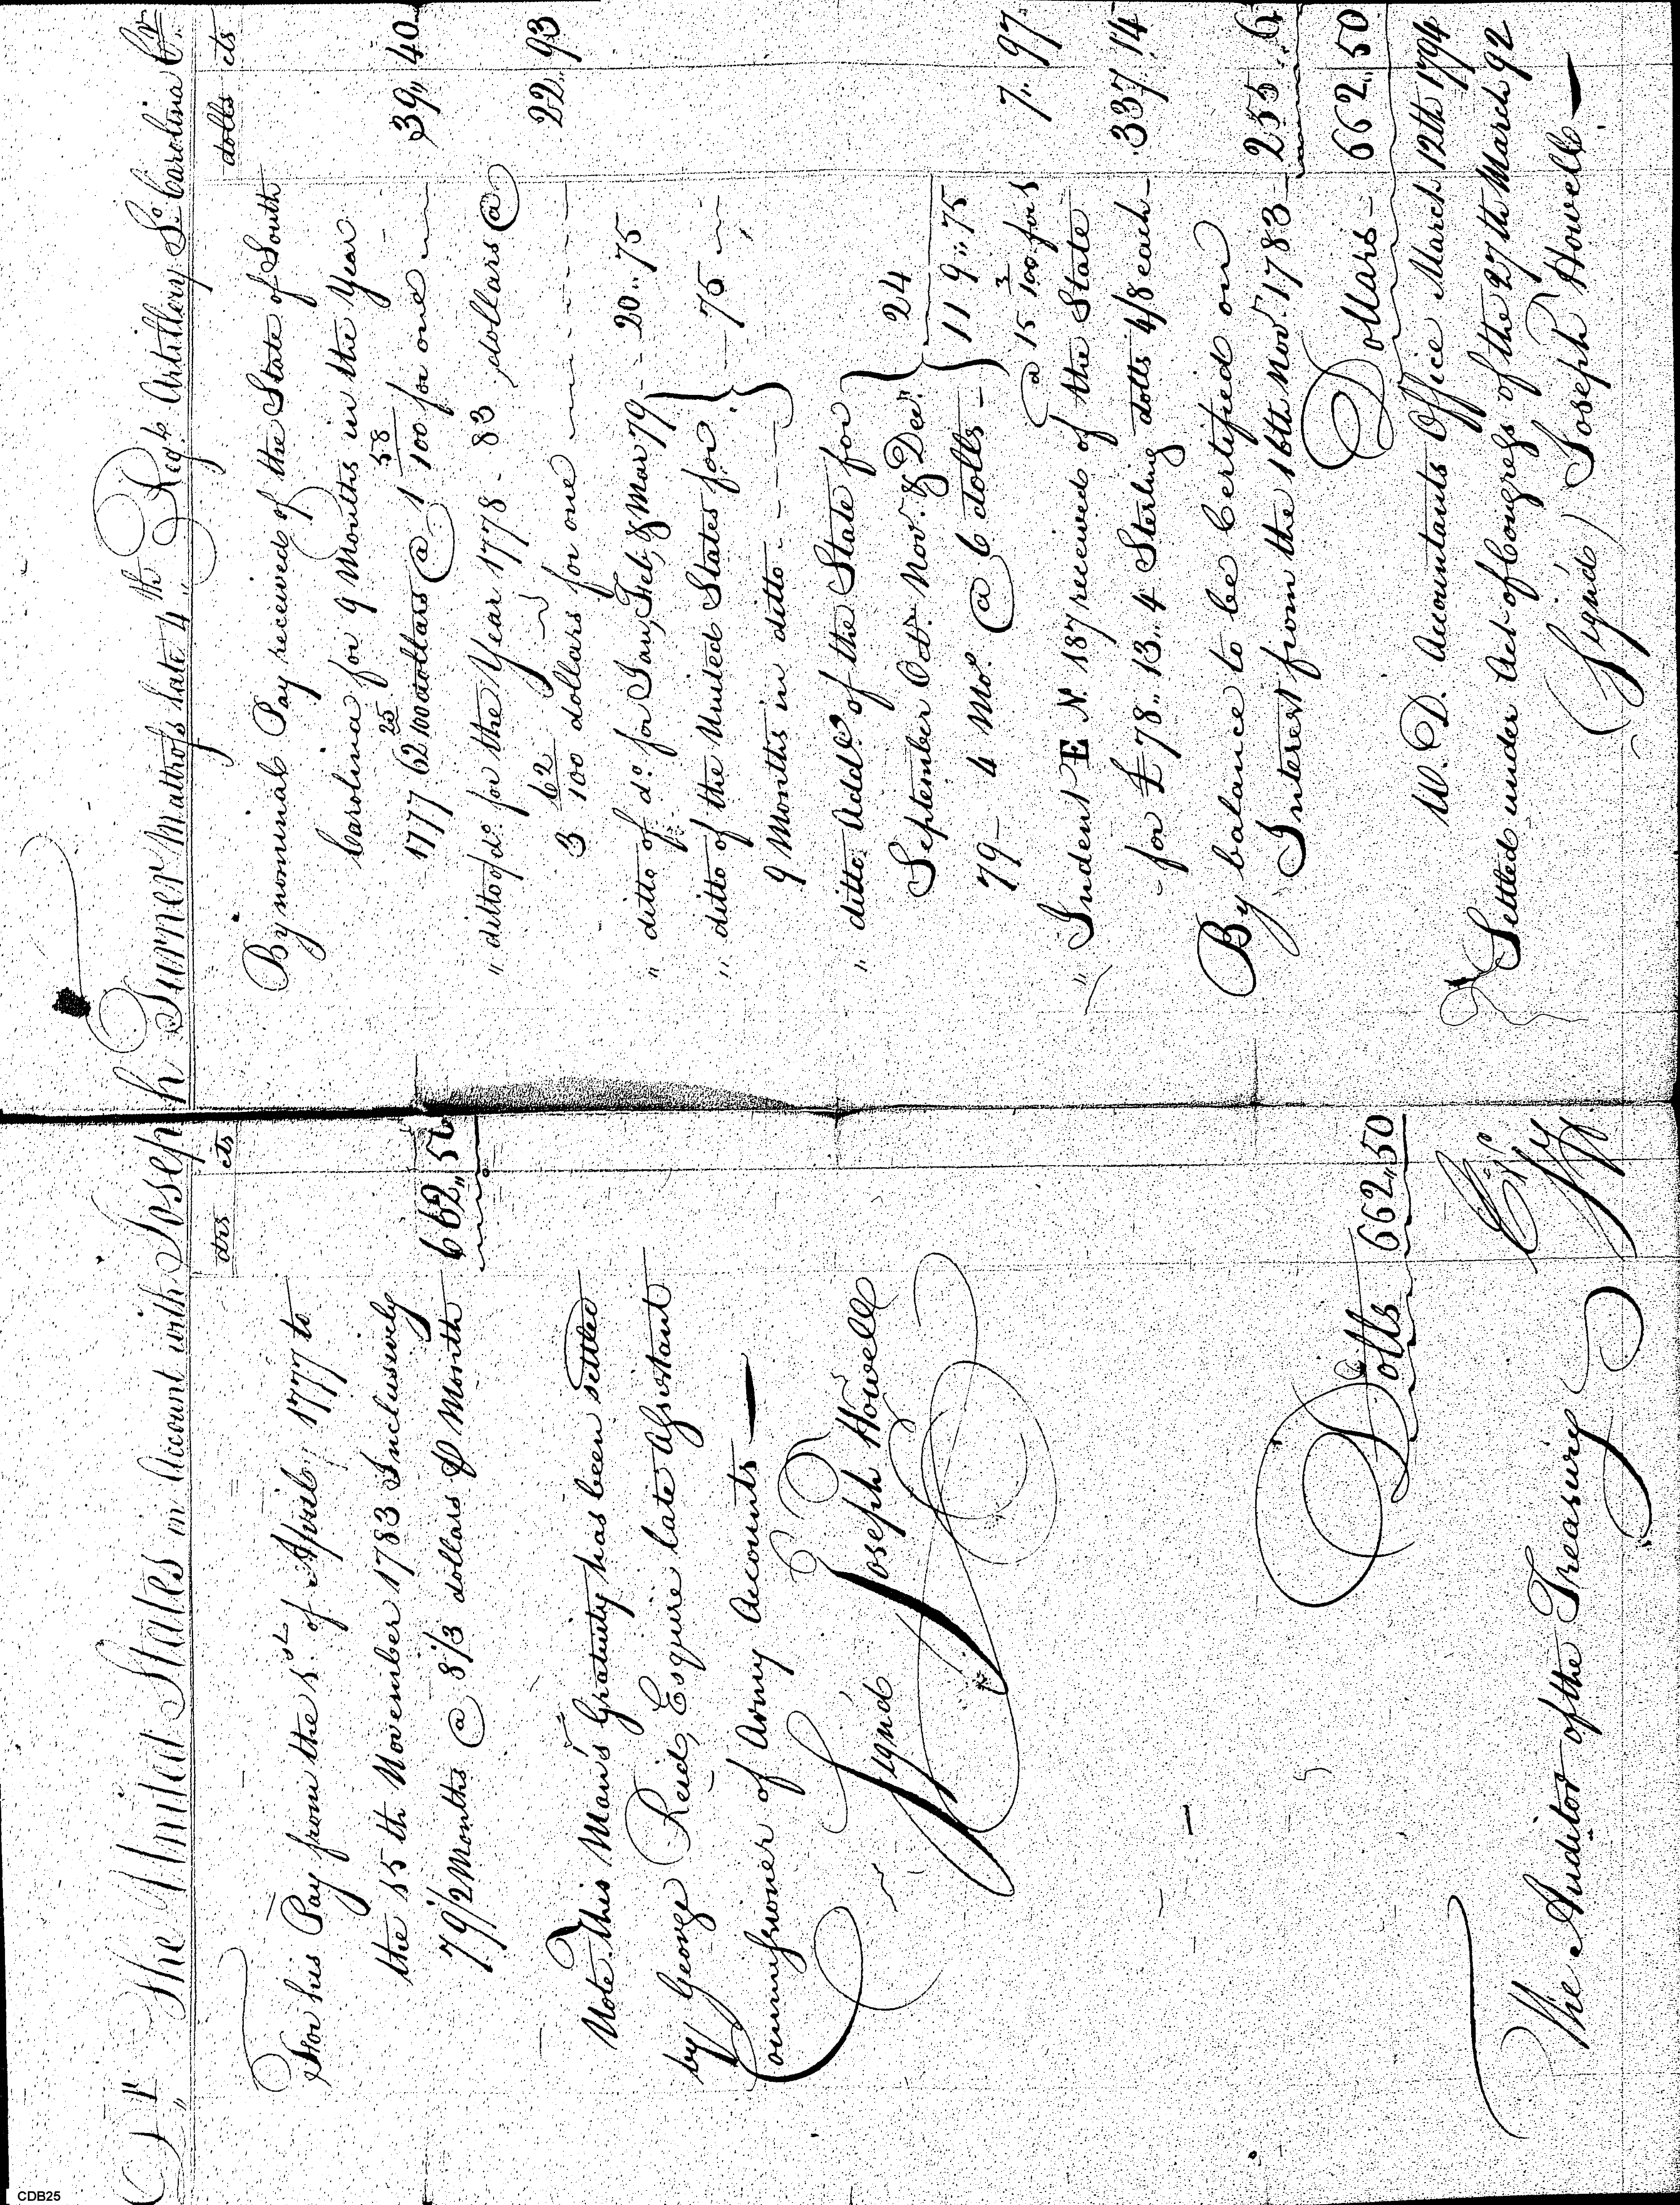 Dr The United States in Account with Joseph Turner Matross late 4th Regt Artillery So Carolina Cr
drs cts
For his Pay from the 1st of April 1777 to
the 15th November 1783 Inclusively
79 1/2 Months @ 8 1/3 dollars ⅌ Month 662,,50
Note. This Man's Gratuity has been settled
by George Reid, Esquire late Assistant
Commissioner of Army Accounts
Signd Joseph Howell
Dolls 662,,50
The Auditor of the Treasury
dolls cts
By nominal Pay received of the State of South
Carolina for 9 Months in the Year
1777 62 25/100 dollars @ 1 58/100 for one 39,,40
" ditto of do for the Year 1778 - 83 dollars @
3 62/100 dollars for one 22,,93
" ditto of do for Jan, Feb, & Mar 79 - 20,,75
" ditto of the United States for
9 Months in ditto 75
" ditto Addl of the State for
September Octr Nov. & Decr 24
79 - 4 Mo. @ 6 dolls - 119,,75
@ 15 3/100 for 1 7,,97
" Indent E N. 187 received of the State
for £78,,13,,4 Sterling dolls 4/8 each 337,,14
By balance to be Certified on
Interest from the 16th Nov. 1783 255,,6
Dollars - 662,,50
W. D. Accountants Office March 12th 1794
Settled under Act of Congress of the 27th March 92
(Signd) Joseph Howell
CDB25